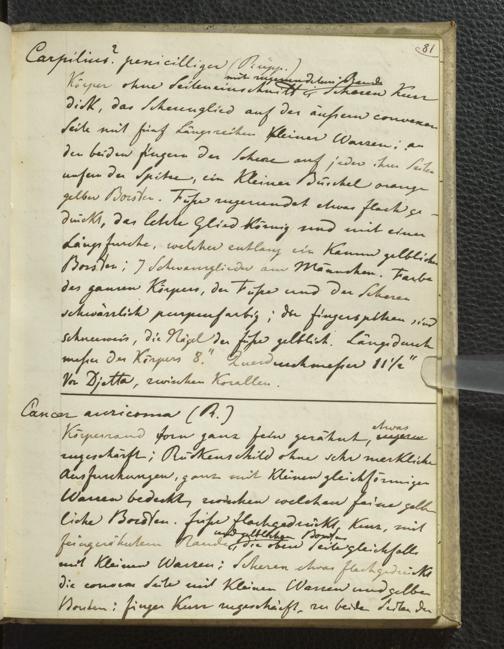 81
Carpilius? penicilliger (Rüpp.)
mit zugerundetem Rande
Körper ohne Seiteneinschnitt, Scheren kurz
dick, das Scherenglied auf der äußern convexen
Seite mit fünf Längsreihen kleiner Warzen; an
den beiden Fingern der Schere auf jeder ihrer Seiten
unfern der Spitze, ein kleiner Büschel orange
gelber Borsten. Füße zugerundet etwas flach ge-
drückt, das letzte Glied körnig und mit einer
Längsfurche, welcher entlang ein Kamm gelblicher
Borsten; 7 Schwanzglieder am Männchen. Farbe
des ganzen Körpers, der Füße und der Scheren
schwärzlich purpurfarbig; die Fingerspitzen sind
schneeweis, die Nägel der Füße gelblich. Längedurch
messer des Körpers 8." Querdurchmesser 11½"
Von Djetta, zwischen Korallen.
Cancer auricoma (R.)
etwas
Körperrand vorn ganz fein gezähnt,
zugeschärft; Rückenschild ohne sehr merkliche
Ausfurchungen, ganz mit kleinen gleichförmigen
Warzen bedeckt, zwischen welchen feine gelb
liche Borsten. Füße flachgedrückt, kurz, mit
und gelblichen Borsten
feingezähntem Rande, die obere Seite gleichfalls
mit kleinen Warzen; Scheren etwas flachgedrückt
die convexe Seite mit kleinen Warzen und gelben
Borsten; Finger kurz zugeschärft, zu beiden Seiten der